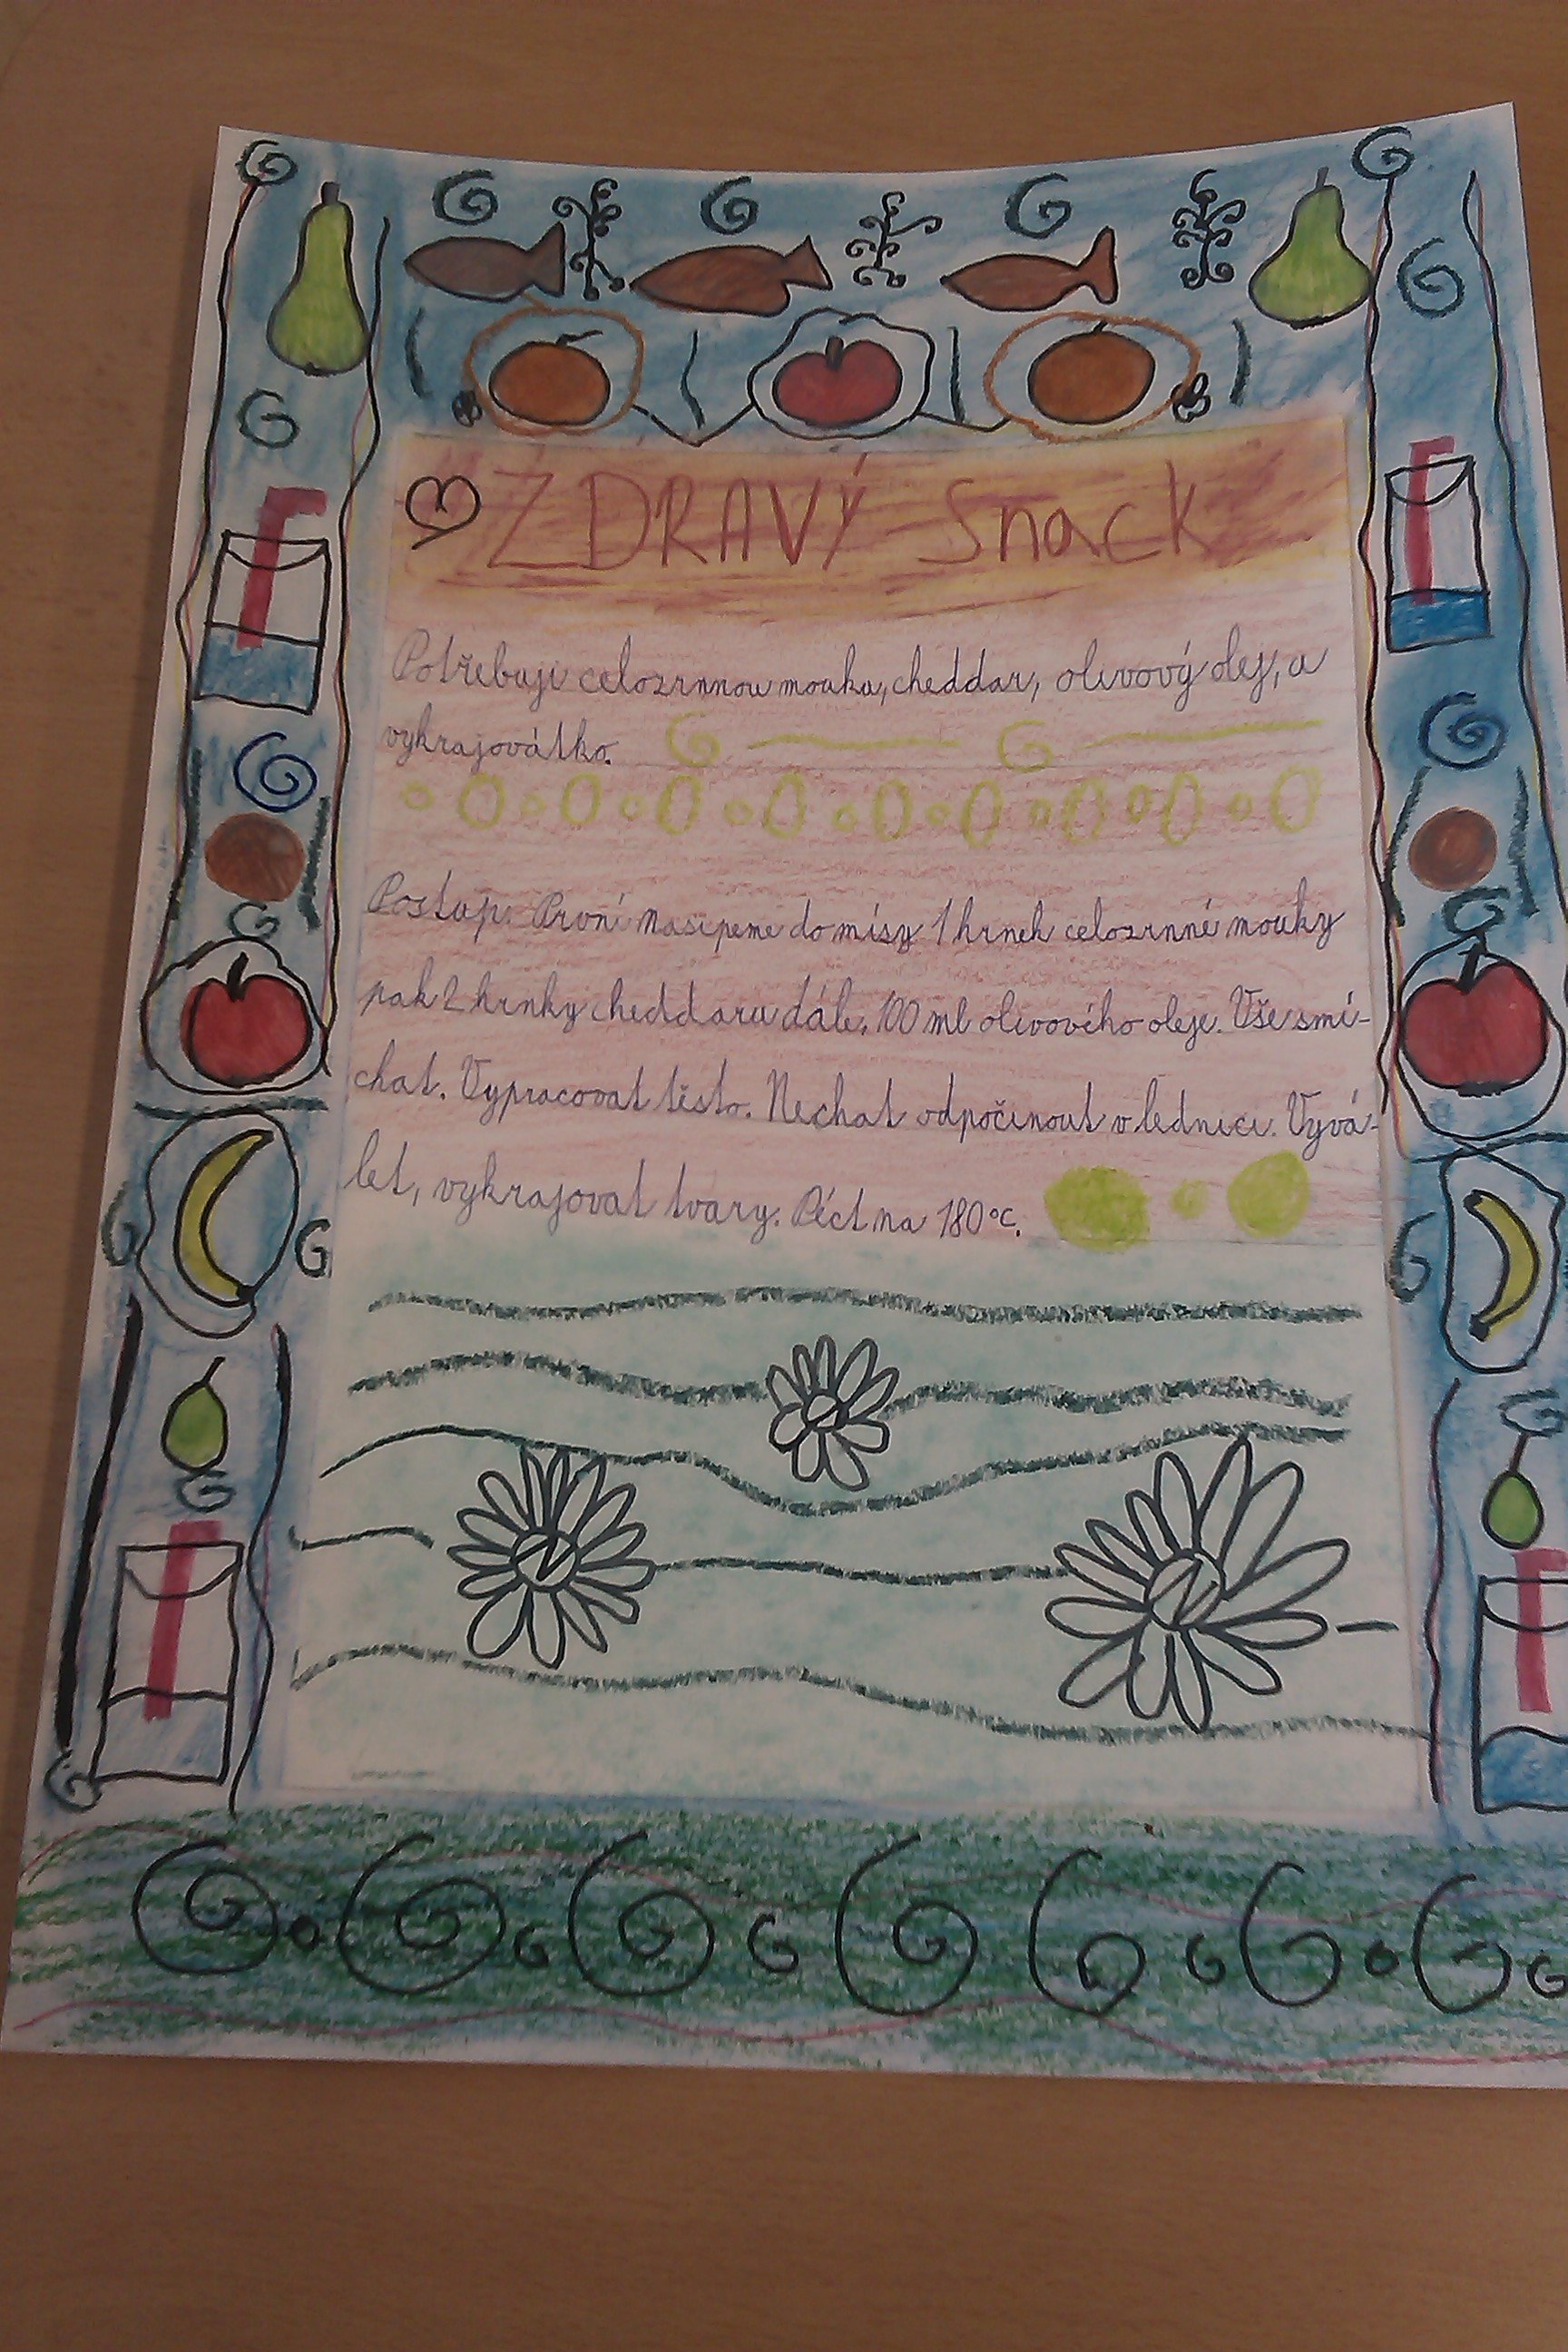 ZDRAVÝ Snack
Potřebuji celozrnnou mouku, cheddar, olivový olej, a
vykrajovátko.
Postup: První nasipeme do mísy 1 hrnek celozrnné mouky
pak 2 hrnky cheddaru dále, 100 ml olivového oleje. Vše smí-
chat. Vypracovat těsto. Nechat odpočinout v lednici. Vyvá-
let, vykrajovat tvary. Péct na 180°c.